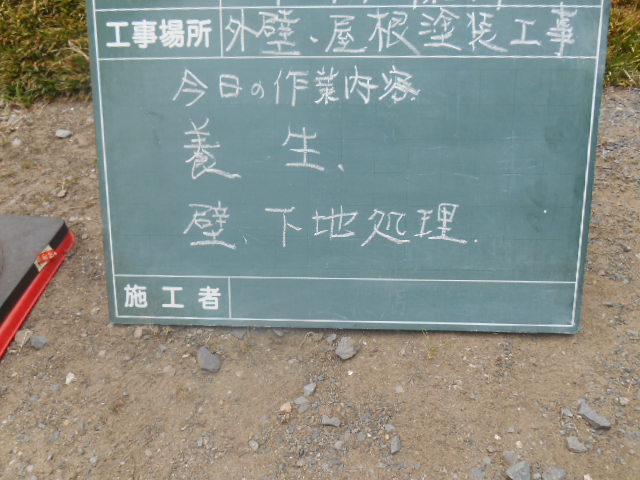 工事場所 外壁、屋根塗装工事
今日の作業内容
養 生、
壁、下地処理.
施工者